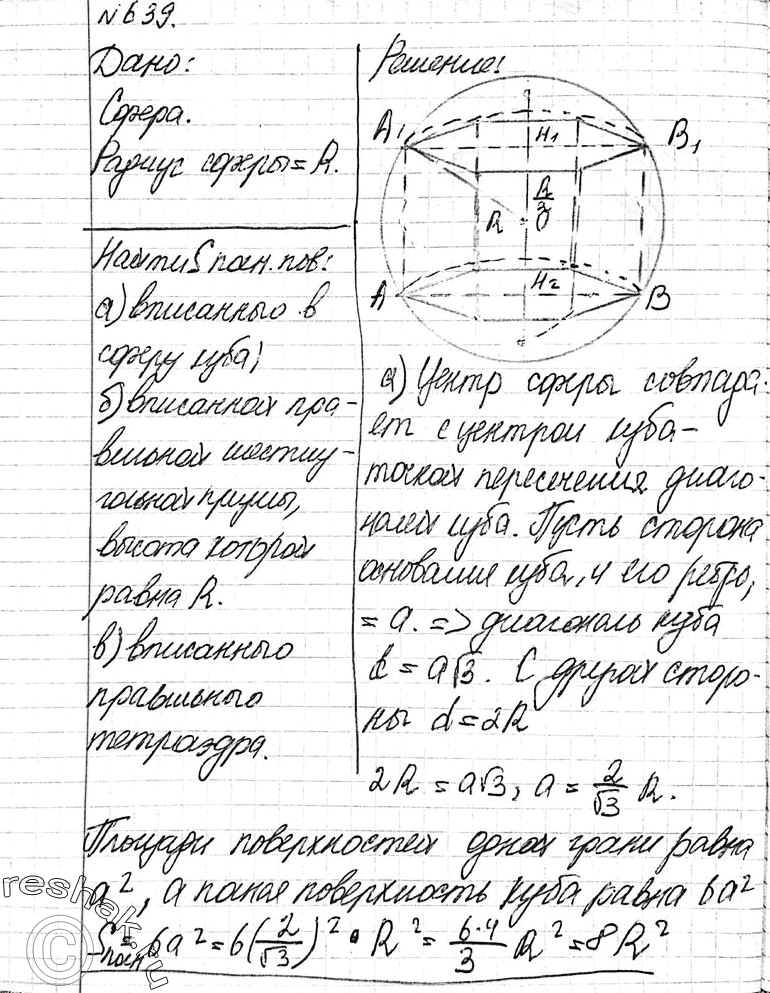 №639.
Дано:
Сфера.
Радиус сферы=R.
Найти S полн. пов:
а) вписанного в
сферу куба;
б) вписанной пра-
вильной шестиу-
гольной призмы,
высота которой
равна R.
в) вписанного
правильного
тетраэдра.
Решение:
A₁ H₁ B₁
R/2
R O
A H₂ B
а) Центр сферы совпада-
ет с центром куба-
точкой пересечения диаго-
налей куба. Пусть сторона
основания куба, и его ребро,
= a. => диагональ куба
d = a√3. С другой сторо-
ны d=2R
2R = a√3; a = 2/√3 R.
Площади поверхностей одной грани равна
a², а полная поверхность куба равна 6a²
Sполн = 6a² = 6(2/√3)² • R² = 6·4/3 R² = 8R²
© reshak.ru